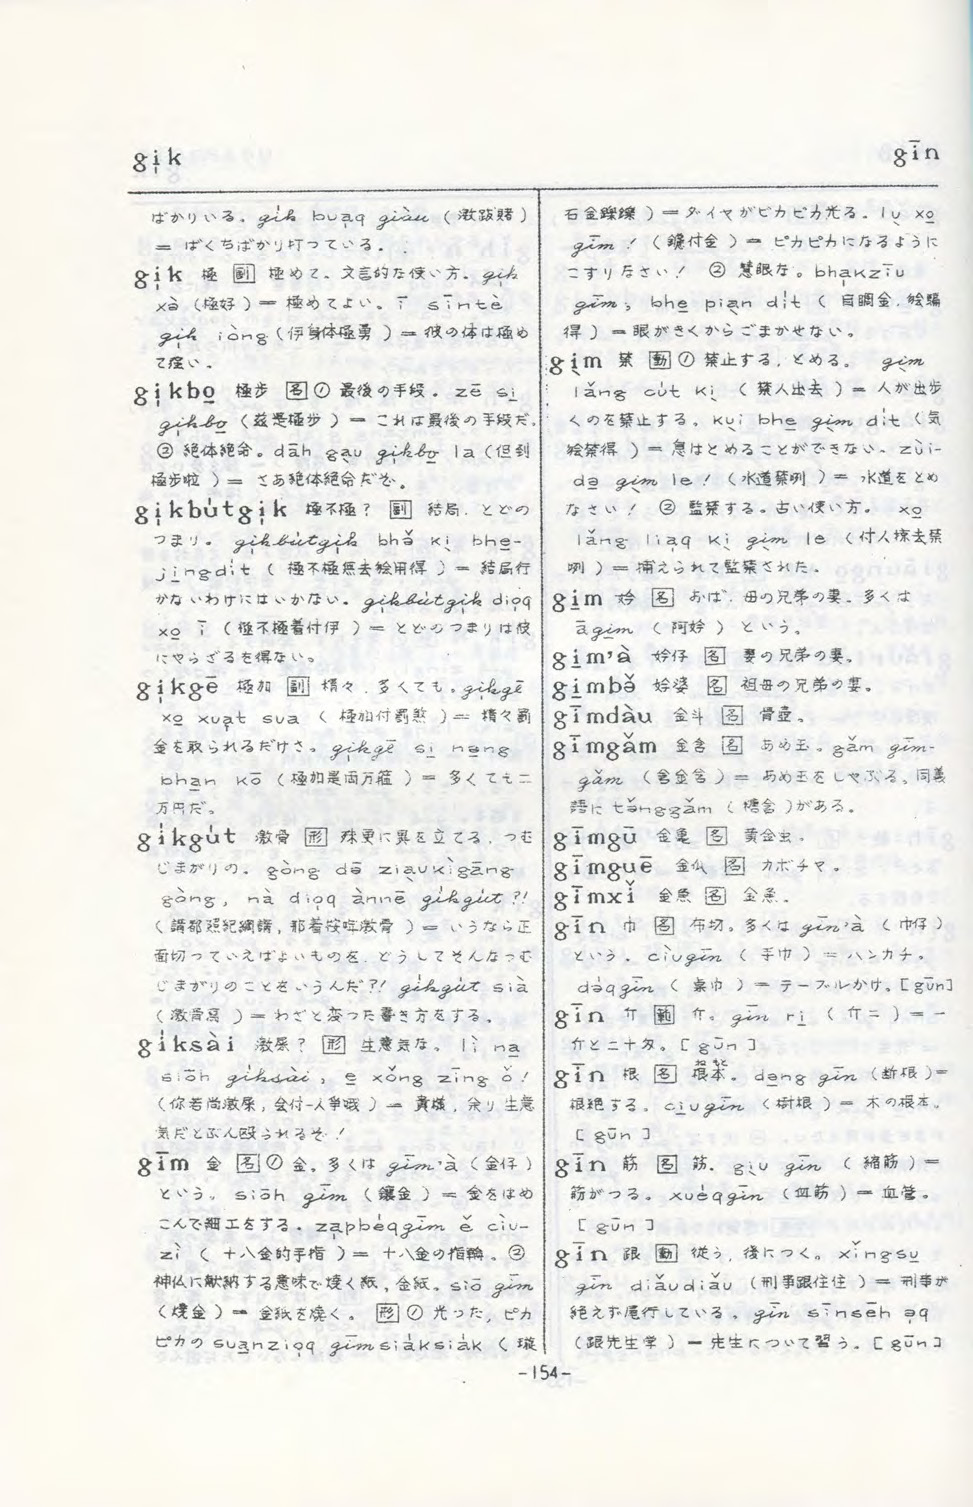 gi̍k
gīn
ばかりいる。gi̍k bua̍q giàu (激跋賭)
= ばくちばかり打っている。
gi̍k 極 副 極めて、文言的な使い方。gi̍k
xə̀ (極好) = 極めてよい。ī sīntè
gi̍k iòng (伊身体極勇) = 彼の体は極め
て強い。
gi̍kbo̱ 極歩 名 ① 最後の手段。zē si̱
gi̍kbo̱ (玆是極歩) = これは最後の手段だ。
② 絶体絶命。dāh gau gi̍kbo̱ la (但到
極歩啦) = さあ絶体絶命だぞ。
gi̍kbu̍tgi̍k 極不極? 副 結局、とどの
つまり。gi̍kbu̍tgi̍k bhə̌ ki̱ bhe̱-
jı̱ngdit (極不極無去絵用得) = 結局行
かないわけにはいかない。gi̍kbu̍tgi̍k dio̍q
xo̱ ī (極不極着付伊) = とどのつまりは彼
にやらざるを得ない。
gi̍kgē 極加 副 精々、多くても。gi̍kgē
xo̱ xua̍t sua (極加付罰煞) = 精々罰
金を取られるだけさ。gi̍kgē si̱ no̱ng
bha̱n kō (極加是両万箍) = 多くても二
万円だ。
gikgut 激骨 形 殊更に異を立てる、つむ
じまがりの。gòng də̄ ziàukìgāng-
gòng, nà dio̍q ànnē gikgut ?!
(講都照紀綱講, 那着按哖激骨) = いうなら正
面切っていえばよいものを、どうしてそんなつむ
じまがりのことをいうんだ?! gikgut sià
(激骨寫) = わざと変った書き方をする。
giksài 激屎? 形 生意気な。lì na̱
siōh giksài, e̱ xǒng zīng ǒ!
(你若尚激屎, 会付-人争哦) = 貴様、余り生意
気だとぶん殴られるぞ!
gīm 金 名 ① 金。多くは gīm'à (金仔)
という。siōh gīm (鑲金) = 金をはめ
こんで細工をする。za̍pbéqgīm ě cìu-
zì (十八金的手指) = 十八金の指輪。②
神仏に献納する意味で焼く紙, 金紙。siō gīm
(燒金) = 金紙を焼く。形 ① 光った, ピカ
ピカの suanzio̍q gīmsiáksiák (璇
石金鑠鑠) = ダイヤがピカピカ光る。lu̱ xo̱
gīm! (鑢付金) = ピカピカになるように
こすりなさい! ② 慧眼な。bhakzīu
gīm, bhe̱ pian dit (目睭金, 絵騙
得) = 眼がきくからごまかせない。
gim 禁 動 ① 禁止する、とめる。gim
lǎng cút ki (禁人出去) = 人が出歩
くのを禁止する。kui bhe̱ gim dit (気
絵禁得) = 息はとめることができない。zùi-
də̱ gim le! (水道禁咧) = 水道をとめ
なさい! ② 監禁する。古い使い方。xo̱
lǎng lia̍q ki gim le (付人掠去禁
咧) = 捕えられて監禁された。
gi̱m 妗 名 おば、母の兄弟の妻。多くは
āgi̱m (阿妗) という。
gi̱m'à 妗仔 名 妻の兄弟の妻。
gi̱mbə̌ 妗婆 名 祖母の兄弟の妻。
gīmdàu 金斗 名 骨壺。
gīmgǎm 金含 名 あめ玉。gǎm gīm-
gǎm (含金含) = あめ玉をしゃぶる。同義
語に tə̌nggǎm (糖含) がある。
gīmgū 金亀 名 黄金虫。
gīmguē 金瓜 名 カボチャ。
gīmxǐ 金魚 名 金魚。
gīn 巾 名 布切。多くは gīn'à (巾仔)
という。cìugīn (手巾) = ハンカチ。
də́qgīn (桌巾) = テーブルかけ。[gūn]
gīn 斤 範 斤。gīn ri̱ (斤二) = 一
斤と二十匁。[gūn]
gīn 根 名 根本。də̱ng gīn (断根) =
根絶する。ciugīn (樹根) = 木の根本。
[gūn]
gīn 筋 名 筋。giu gīn (縮筋) =
筋がつる。xuéqgīn (血筋) = 血管。
[gūn]
gīn 跟 動 従う, 後につく。xǐngsu̱
gīn diǎudiǎu (刑事跟住住) = 刑事が
絶えず尾行している。gīn sīnsēh əq
(跟先生学) = 先生について習う。[gūn]
-154-